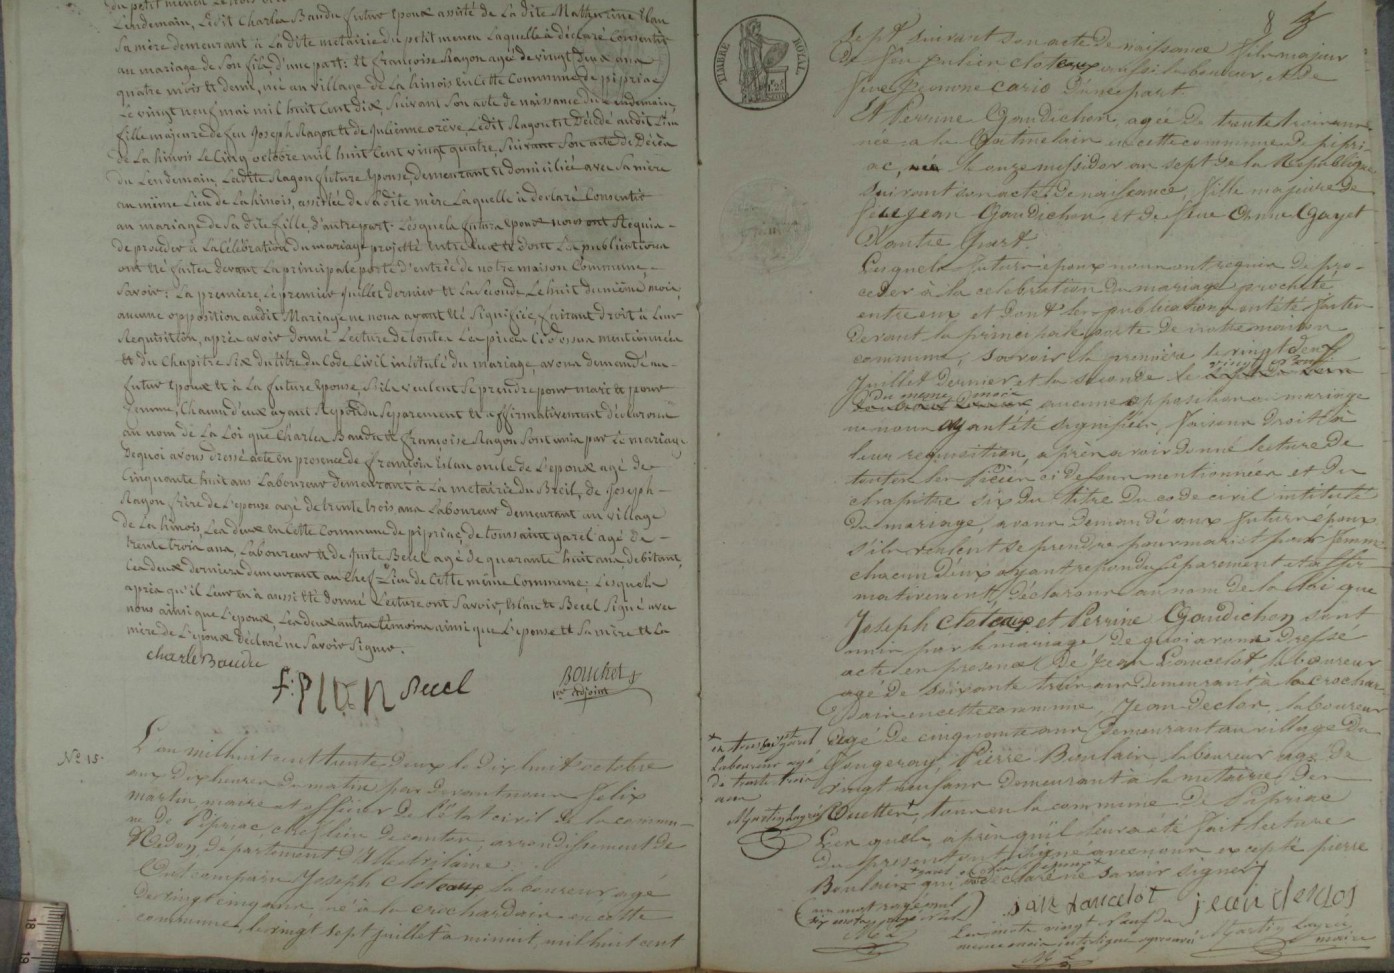 Lendemain, Ledit Charles Baudu futur Epoux assisté de La dite Mathurine Elan
Sa mère demeurant à La dite métairie du petit meneu Laquelle a déclaré Consentir
au mariage de Son fils, d'une part : Et françoise Ragon agée de vingt deux ans
quatre mois et demi, née au village de La hinois en Cette Commune de pipriac
Le vingt neuf mai mil huit Cent dix, Suivant Son acte de naissance du Lendemain,
fille majeure de feu Joseph Ragon et de Julienne orève, Ledit Ragon décédé audit Lieu
de La hinois Le Cinq octobre mil huit Cent vingt quatre, Suivant Son acte de Décès
du Lendemain, Ladite Ragon future Epouse, demeurant et domiciliée avec Sa mère
au même Lieu de La hinois, assistée de Sa dite mère Laquelle a déclaré Consentir
au mariage de Sa dite fille, d'autre part. Lesquels futurs Epoux nous ont Requis
de procéder à La Célébration du mariage projetté entre eux et dont Les publications
ont été faites devant La principale porte d'entrée de notre maison Commune,
Savoir : La première, Le premier Juillet dernier et La Seconde Le huit du même mois,
aucune opposition audit Mariage ne nous ayant été Signifiée, faisant droit à Leur
Requisition, après avoir donné Lecture de toutes Les pièces Ci dessus mentionnées
et du Chapitre Six du titre du Code Civil intitulé du mariage avons demandé au
futur Epoux et à La future Epouse S'ils veulent Se prendre pour mari et pour
femme, Chacun d'eux ayant Répondu Séparement et affirmativement déclarons
au nom de La Loi que Charles Baudu et françoise Ragon Sont unis par Le mariage
De quoi avons dressé acte en présence de françois Elan oncle de L'epoux agé de
Cinquante huit ans Laboureur demeurant à La métairie du Breil, de Joseph
Ragon frère de L'epouse agé de trente trois ans Laboureur demeurant au village
de La hinois, Les deux en Cette Commune de pipriac, de toussaint garel agé de
trente trois ans, Laboureur et de Juste Becel agé de quarante huit ans, débitant,
Ces deux derniers demeurant au Chef Lieu de Cette même Commune ; Lesquels
après qu'il Leur en a aussi été donné Lecture ont Savoir, Elan et Becel Signé avec
nous ainsi que L'epoux, Les deux autres témoins ainsi que L'epouse et Sa mère et La
mère de L'epoux déclaré ne Savoir Signer.
Charle Baudu
Becel
Bouchet
1er Adjoint
No 15.
L'an mil huit cent trente deux le dix huit octobre
aux dix heures du matin par devant nous Felix
Martin, maire et officier de l'état civil de la commu-
ne de Pipriac chef lieu de canton, arrondissement de
Redon, département d'Ille et vilaine ;
Ont comparu Joseph Cloteaux laboureur, agé
de vingt cinq ans, né à la crochardais en cette
commune, le vingt sept juillet à minuit, mil huit cent
TIMBRE ROYAL
8
sept suivant son acte de naissance fils majeur
de feu Julien cloteaux aussi laboureur, et de
feue Jeanne cario d'une part
Et Perrine Gaudichon, agée de trente trois ans
née à la en cette commune de pipri-
ac, le onze messidor an sept de la République
suivant son acte de naissance, fille majeure de
feu Jean Gaudichon et de feue Anne Gayet
D'autre Part.
Lesquels futurs époux nous ont requis de pro-
céder à la célébration du mariage projeté
entre eux et dont les publications ont été faites
devant la principale porte de notre maison
commune, savoir la première le vingt deux
Juillet dernier et la seconde le vingt neuf
du même mois aucune opposition au mariage
ne nous ayant été signifiée, faisant droit à
leur requisition, après avoir donné lecture de
toutes les pièces ci dessus mentionnées et du
chapitre six du titre du code civil intitulé
du mariage, avons demandé aux futurs époux
s'ils veulent se prendre pour mari et pour femme
chacun d'eux ayant répondu séparement et affir-
mativement, déclarons au nom de la loi que
Joseph cloteaux et Perrine Gaudichon sont
unis par le mariage De quoi avons dressé
acte en présence De Jean Lancelot, laboureur
agé de soixante trois ans demeurant à la crochar-
dais en cette commune, Jean declos, laboureur
agé de cinquante ans demeurant au village du
Fougeray, Pierre Boulais, laboureur agé de
vingt neuf ans demeurant à la métairie des
Ouettes, tous en la commune de Pipriac
Lesquels, après qu'il leur a été fait lecture
du présent ont signé avec nous excepté pierre
Boulais qui a déclaré ne savoir signer
et toussaint garel
Laboureur agé
de trente trois
ans
Jan Lancelot
jean declos
Les mots vingt neuf du
même mois interligne approuvés
maire